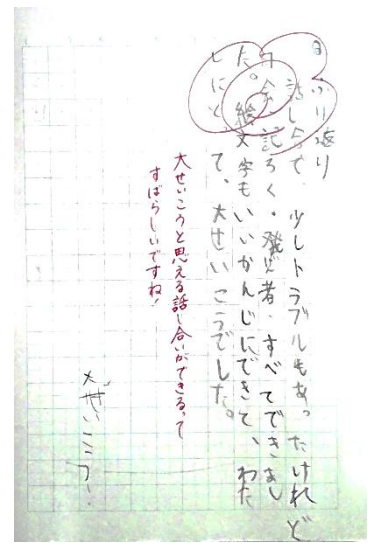 ふり返り
話し合で、少しトラブルもあったけれど
司会・記ろく・発見者・すべてできまし
た。絵文字もいいかんじにできて、わた
しにとって、大せいこうでした。
大せいこうと思える話し合いができるって
すばらしいですね!
大せいこう!